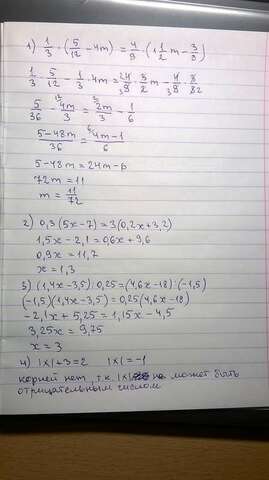 1) 1/3 · (5/12 - 4m) = 4/9 · (1 1/2 m - 3/8)
1/3 · 5/12 - 1/3 · 4m = 4/9 · 3/2 m - 4/9 · 3/8
5/36 - 4m/3 = 2m/3 - 1/6
5-48m/36 = 4m-1/6
5-48m = 24m-6
72m = 11
m = 11/72
2) 0,3(5x-7) = 3(0,2x+3,2)
1,5x - 2,1 = 0,6x + 9,6
0,9x = 11,7
x = 1,3
3) (1,4x-3,5):0,25 = (4,6x-18):(-1,5)
(-1,5)(1,4x-3,5) = 0,25(4,6x-18)
-2,1x + 5,25 = 1,15x - 4,5
3,25x = 9,75
x = 3
4) |x|+3=2 |x|=-1
корней нет, т.к. |x| не может быть
отрицательным числом